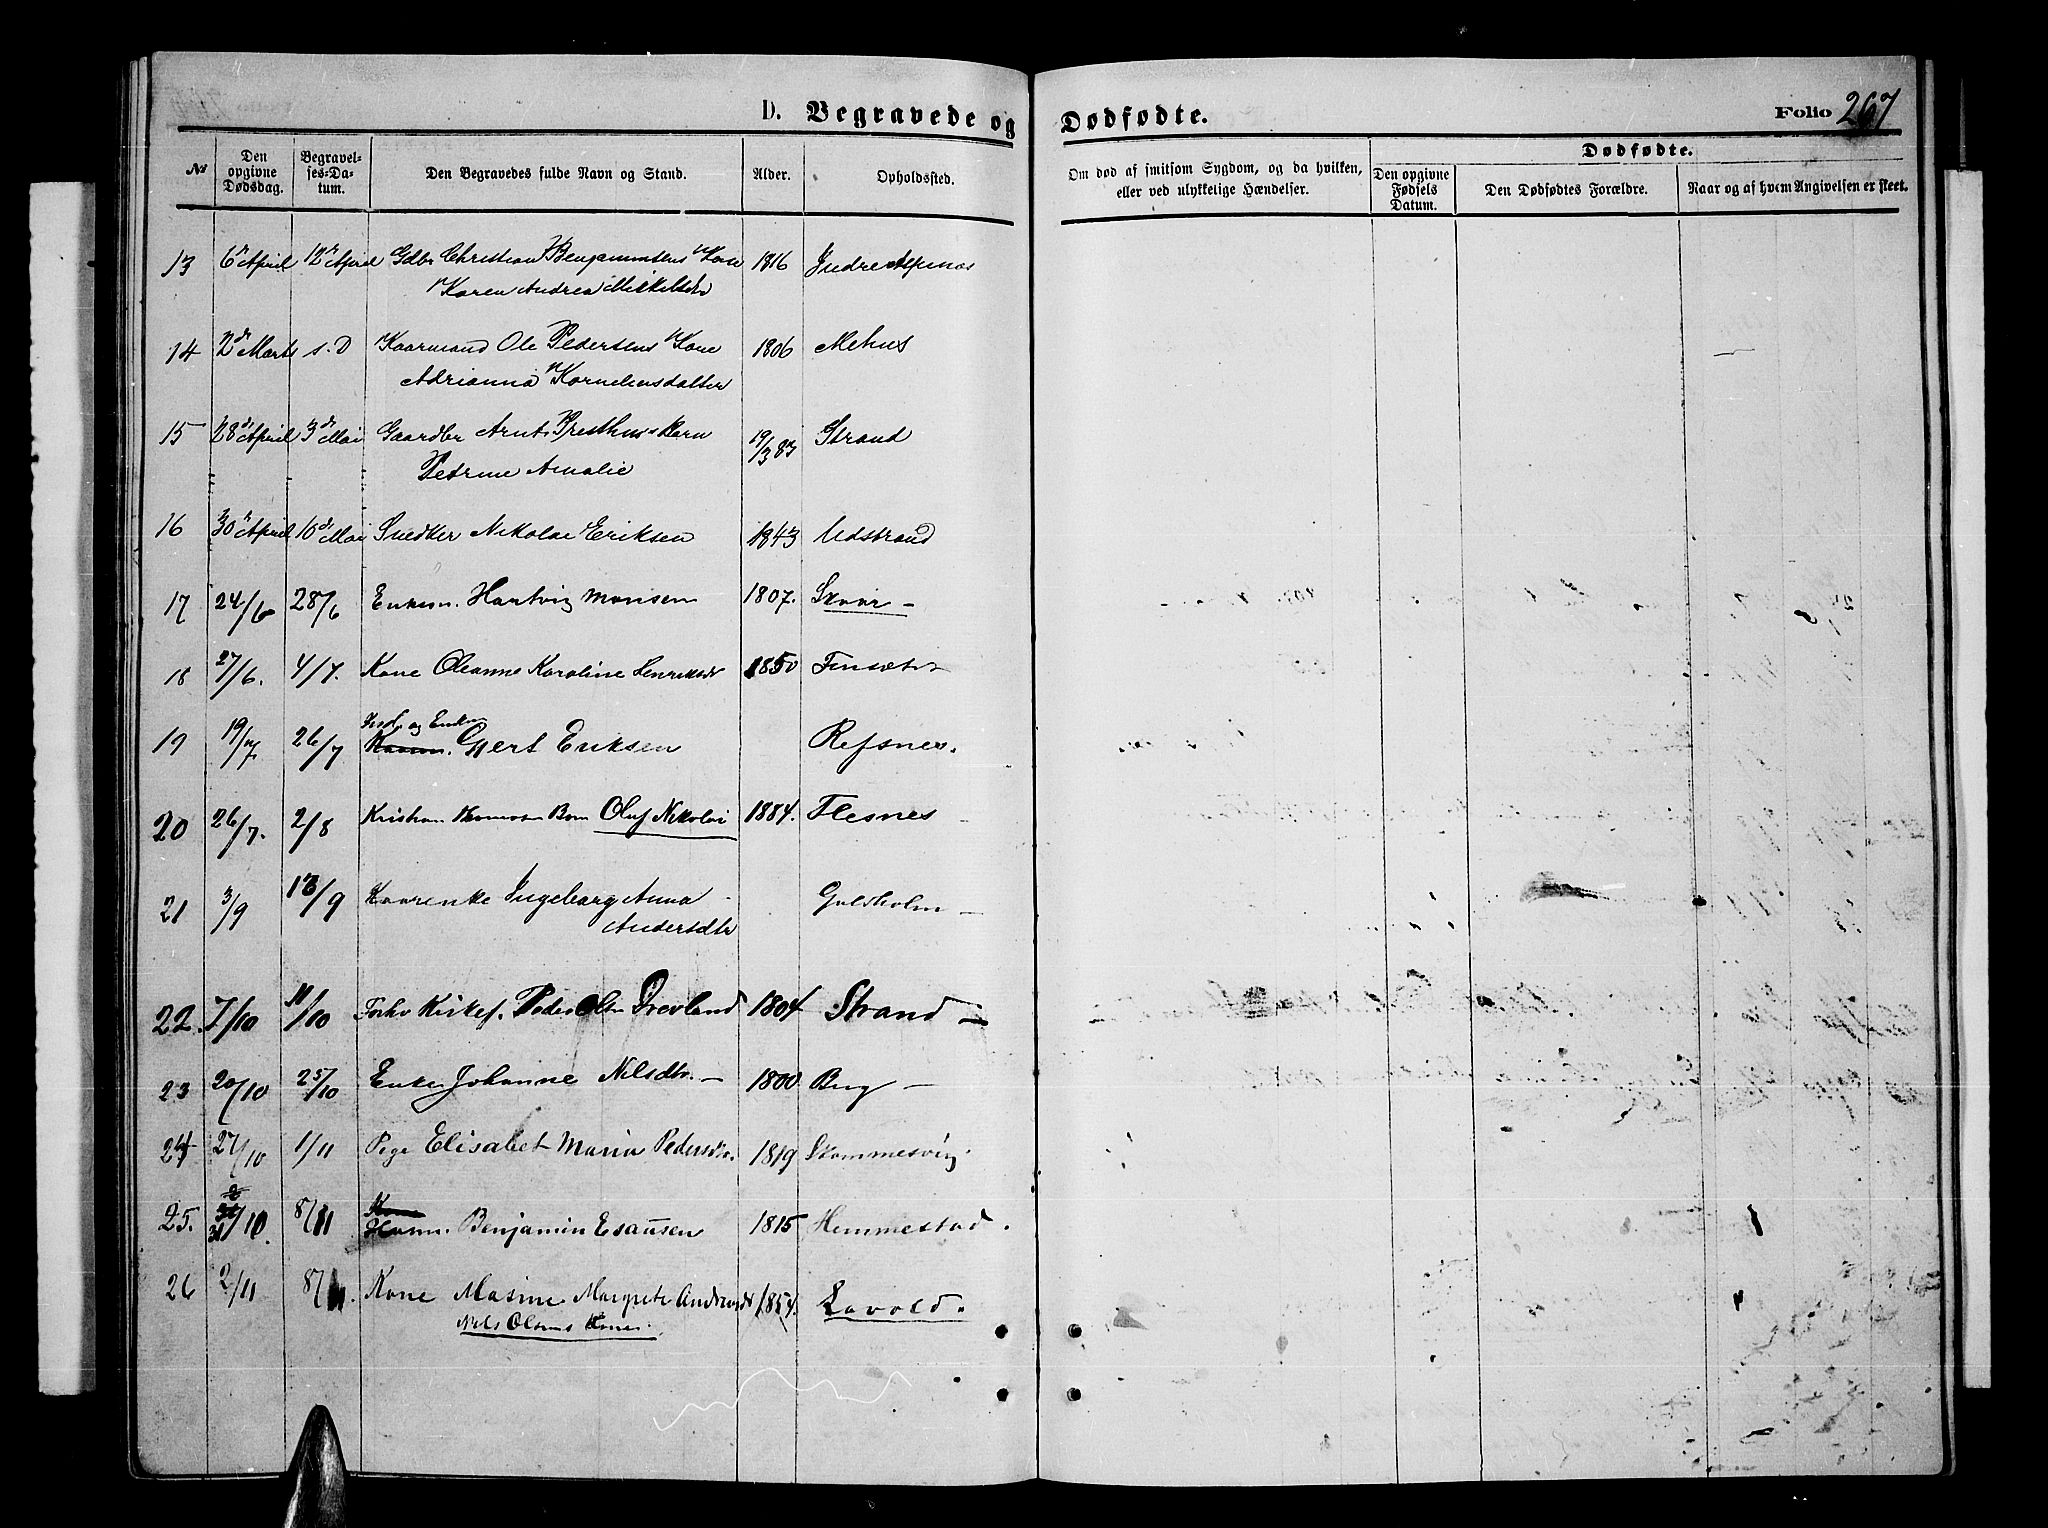 D. Begravede og Dødfødte.
Folio 267
No
Den opgivne Dødsdag.
Begravelses-Datum.
Den Begravedes fulde Navn og Stand.
Alder.
Opholdssted.
Om død af smitsom Sygdom, og da hvilken, eller ved ulykkelige Hændelser.
Dødfødte.
Den opgivne Fødsels Datum.
Den Dødfødtes Forældre.
Naar og af hvem Angivelsen er skeet.
13 6te April 12te April Gdbr Christian Benjaminsens Kone 1816 Indre Alpenæs
Karen Andrea Mikkelsdtr
14 2den Marts s. D Kaarmand Ole Pedersens Kone 1806 Mehus
Adrianna Korneliusdatter
15 28de April 3de Mai Gaardbr Arnt Presthus Barn 19/3 87 Strand
Petrine Amalie
16 30te April 10de Mai Snedker Nikolai Eriksen 1843 Udstrand
17 24/6 28/6 Enkem. Hartvig Monsen 1807. Skaar -
18 27/6. 4/7. Kone Oleanne Karoline Henriksdtr 1850 Finsæter
19 19/7 26/7 Inds. og Enkem Gjert Eriksen Refsnes.
20 26/7. 2/8 Kristian Barn Oluf Nikolai 1884. Flesnes
21 3/9 13/9 Kaarenke Ingeborg Anna Gulsholm -
Andersdtr
22. 7/10 11/10 Forhv Kirkes. Peder Olsn Drevland 1804 Strand -
23 20/10 25/10 Enke Johanne Nilsdtr. - 1800 Berg -
24 27/10 1/11 Pige Elisabet Maria Pedersdtr. 1819 Skommesvig.
25. 31/10. 8/11 Kaarm. Benjamin Esausen 1815 Hemmestad.
26 2/11 8/11. Kone Masine Margrete Andreasdt 1854. Lavold.
Nils Olsens Kone.